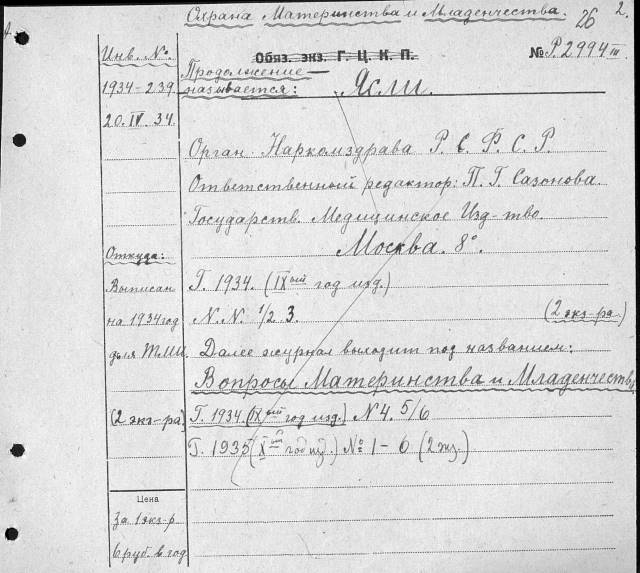 Охрана Материнства и Младенчества.
26 2.
Инв. №
Обяз. экз. Г. Ц. К. П.
№ Р.2994 III
Продолжение —
1934-239
называется: Ясли.
20.IV.34.
Орган Наркомздрава Р. С. Ф. С. Р.
Ответственный редактор: П. Г. Сазонова.
Государств. Медицинское Изд-тво.
Москва. 8°.
Откуда:
Выписан
Г. 1934. (IХый год изд.)
на 1934 год
N.N. 1/2 3. (2 экз-ра)
для ТМИ.
Далее журнал выходит под названием:
Вопросы Материнства и Младенчества
(2 экз-ра)
Г. 1934. (IXый год изд.) N 4. 5/6
Г. 1935 (Xый год изд.) № 1-6 (2 экз.)
Цена
За 1 экз-р
6 руб. в год